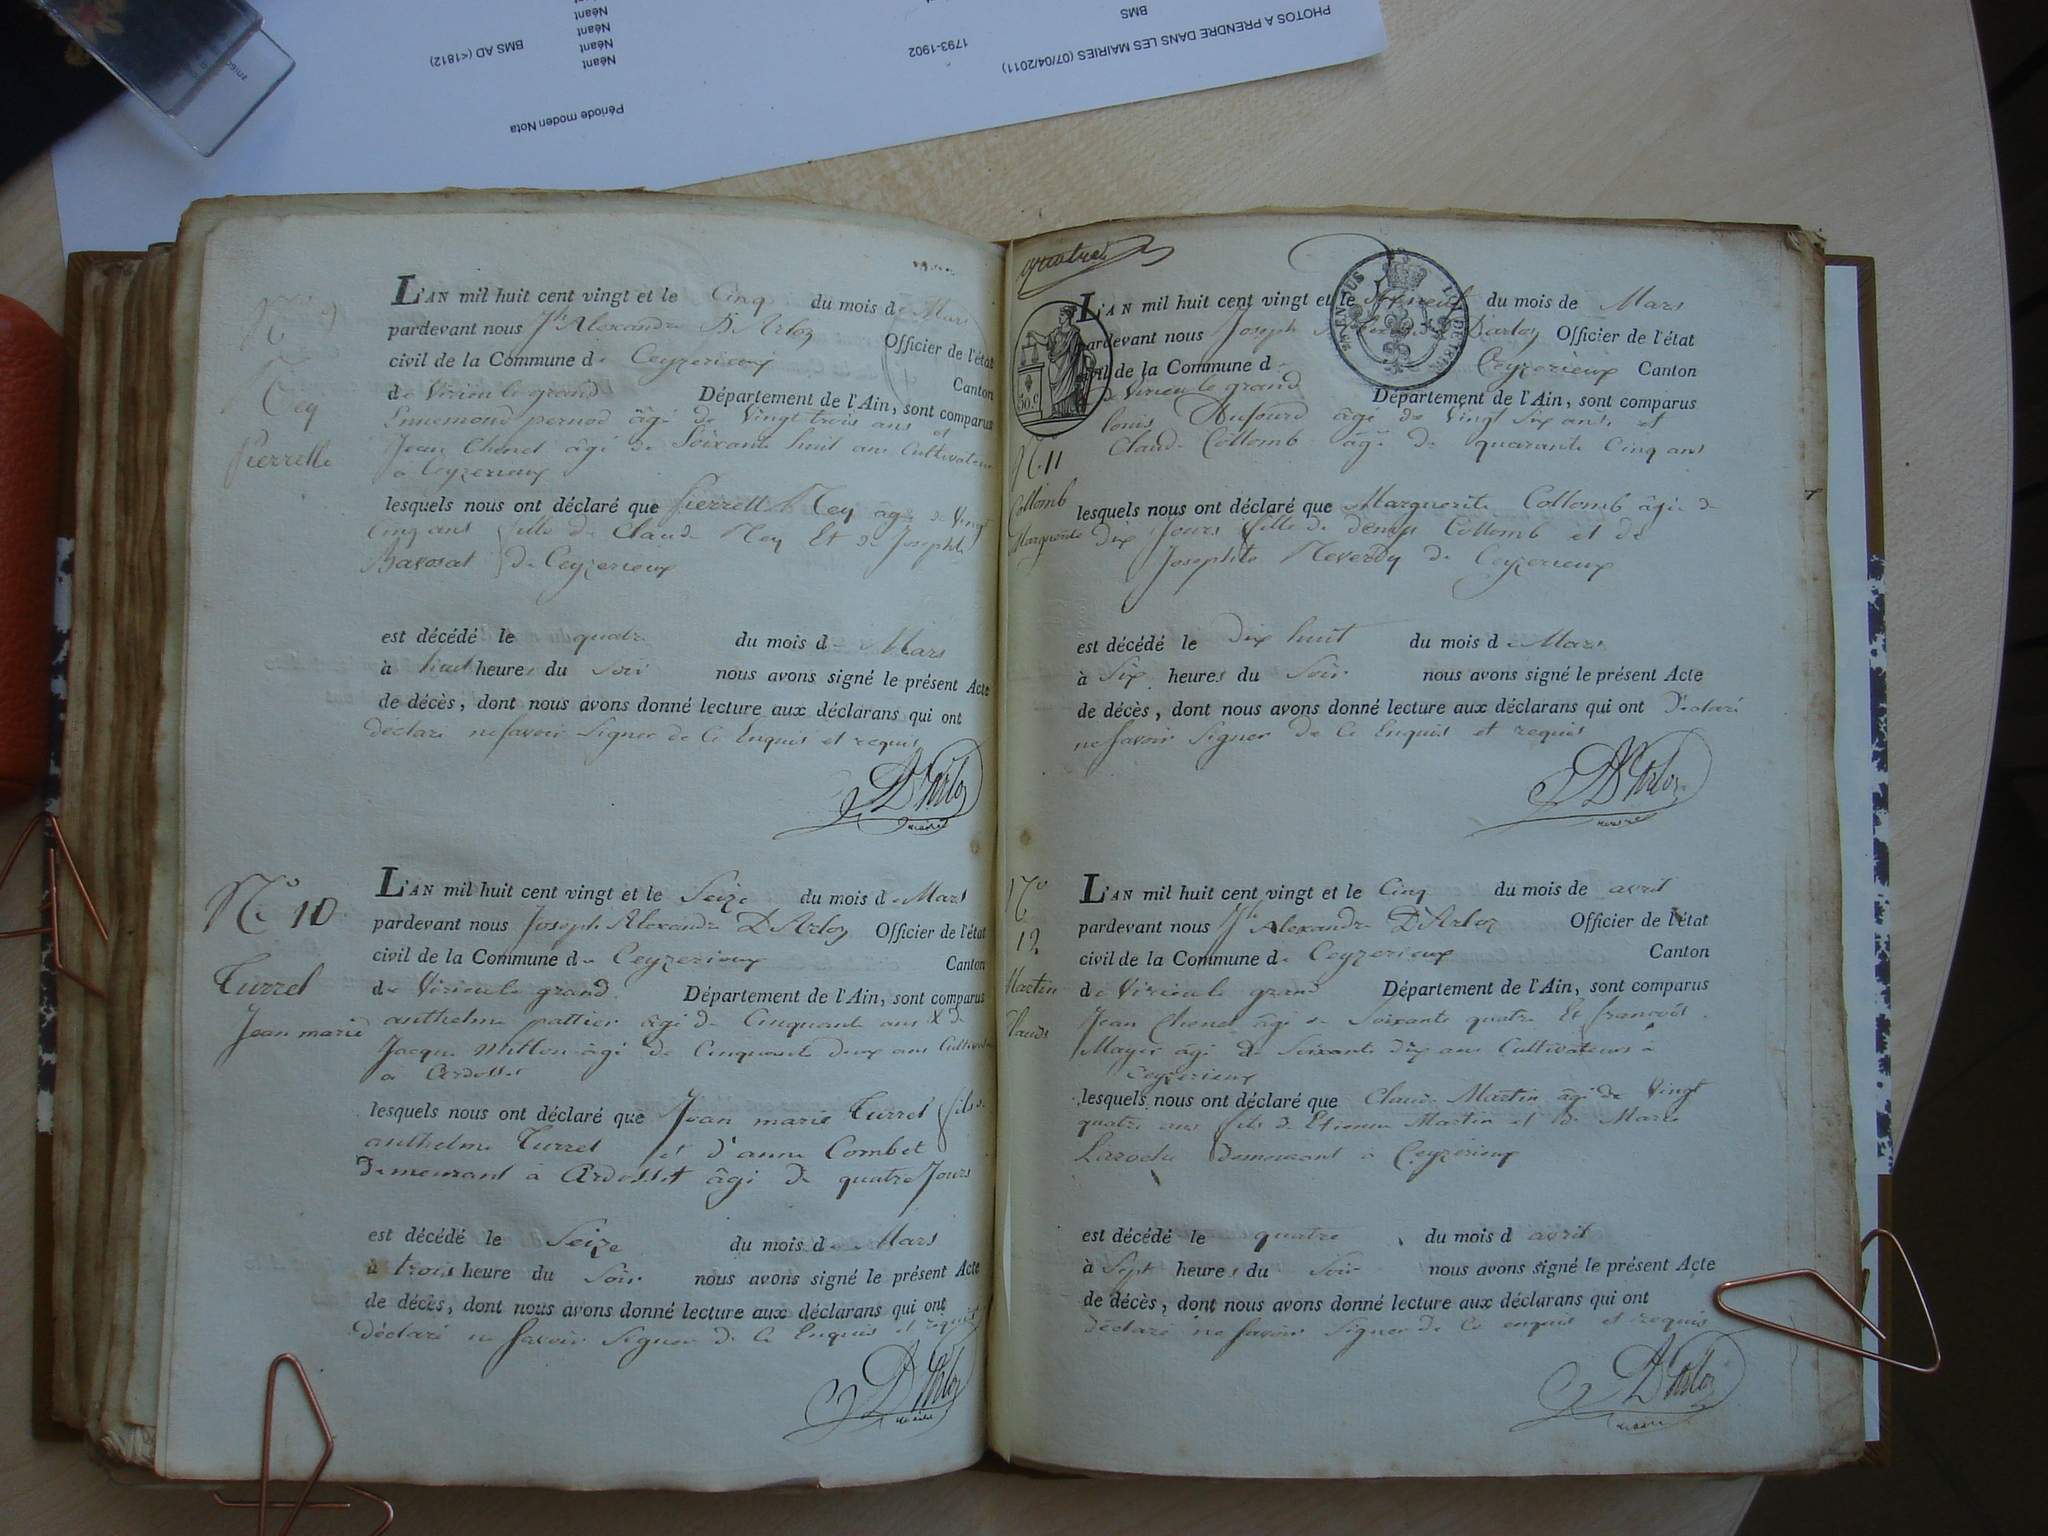 PHOTOS A PRENDRE DANS LES MAIRIES (07/04/2011)
BMS
1793-1902
BMS AD (<1812)
Néant
Néant
Néant
Néant
Période moder Nota
N° 9
Pierrette
L'AN mil huit cent vingt et le Cinq du mois de Mars
pardevant nous Jh Alexandre D'Arloz Officier de l'état
civil de la Commune de Ceyzerieux Canton
de Virieu le grand Département de l'Ain, sont comparus
Ennemond pernod âgé de Vingt trois ans et
Jean Chenet âgé de Soixante huit ans Cultivateurs
a Ceyzerieux
lesquels nous ont déclaré que Pierrette Ney âgé de Vingt
Cinq ans fille de Claude Ney Et de Josephte
Bavosat de Ceyzerieux
est décédé le quatre du mois de Mars
à huit heures du Soir nous avons signé le présent Acte
de décès, dont nous avons donné lecture aux déclarans qui ont
déclaré ne savoir Signer de Ce Enquis et requis
D'Arloz
maire
N° 10
Turrel
Jean marie
L'AN mil huit cent vingt et le Seize du mois de Mars
pardevant nous Joseph Alexandre D'Arloz Officier de l'état
civil de la Commune de Ceyzerieux Canton
de Virieu le grand Département de l'Ain, sont comparus
anthelme pattier âgé de Cinquante ans
Jacque Millon âgé de Cinquante deux ans Cultivateurs
a Ardosset
lesquels nous ont déclaré que Jean marie Turrel fils de
anthelme Turrel et d'anne Combet
Demeurant à Ardosset âgé de quatre Jours
est décédé le Seize du mois de Mars
à trois heure du Soir nous avons signé le présent Acte
de décès, dont nous avons donné lecture aux déclarans qui ont
déclaré ne Savoir Signer de Ce Enquis et requis
D'Arloz
maire
quatre
50.c
N° 11
Collomb
Marguerite
L'AN mil huit cent vingt et le du mois de Mars
pardevant nous Joseph Darloz Officier de l'état
civil de la Commune d Ceyzerieux Canton
de Virieu le grand Département de l'Ain, sont comparus
louis Dufourd âgé de Vingt Six ans et
Claude Collomb âgé de quarante Cinq ans
lesquels nous ont déclaré que Marguerite Collomb âgée de
dix Jours fille de denys Collomb et de
Josephte Neverdy de Ceyzerieux
est décédé le Dix huit du mois de Mars
à Six heures du Soir nous avons signé le présent Acte
de décès, dont nous avons donné lecture aux déclarans qui ont Déclaré
ne Savoir Signer de Ce Enquis et requis
D'Arloz
maire
N°
12
Martin
Claude
L'AN mil huit cent vingt et le Cinq du mois de avril
pardevant nous Jh Alexandre D'Arloz Officier de l'état
civil de la Commune de Ceyzerieux Canton
de Virieu le grand Département de l'Ain, sont comparus
Jean Chenet âgé de Soixante quatre Et françois
Mayer âgé de Soixante dix ans Cultivateurs à
Ceyzerieux
lesquels nous ont déclaré que Claude Martin âgé de Vingt
quatre ans fils de Etienne Martin et de Marie
Laroche demeurant à Ceyzerieux
est décédé le quatre du mois d avril
à Sept heures du Soir nous avons signé le présent Acte
de décès, dont nous avons donné lecture aux déclarans qui ont
déclaré ne Savoir Signer de Ce enquis et requis
D'Arloz
maire